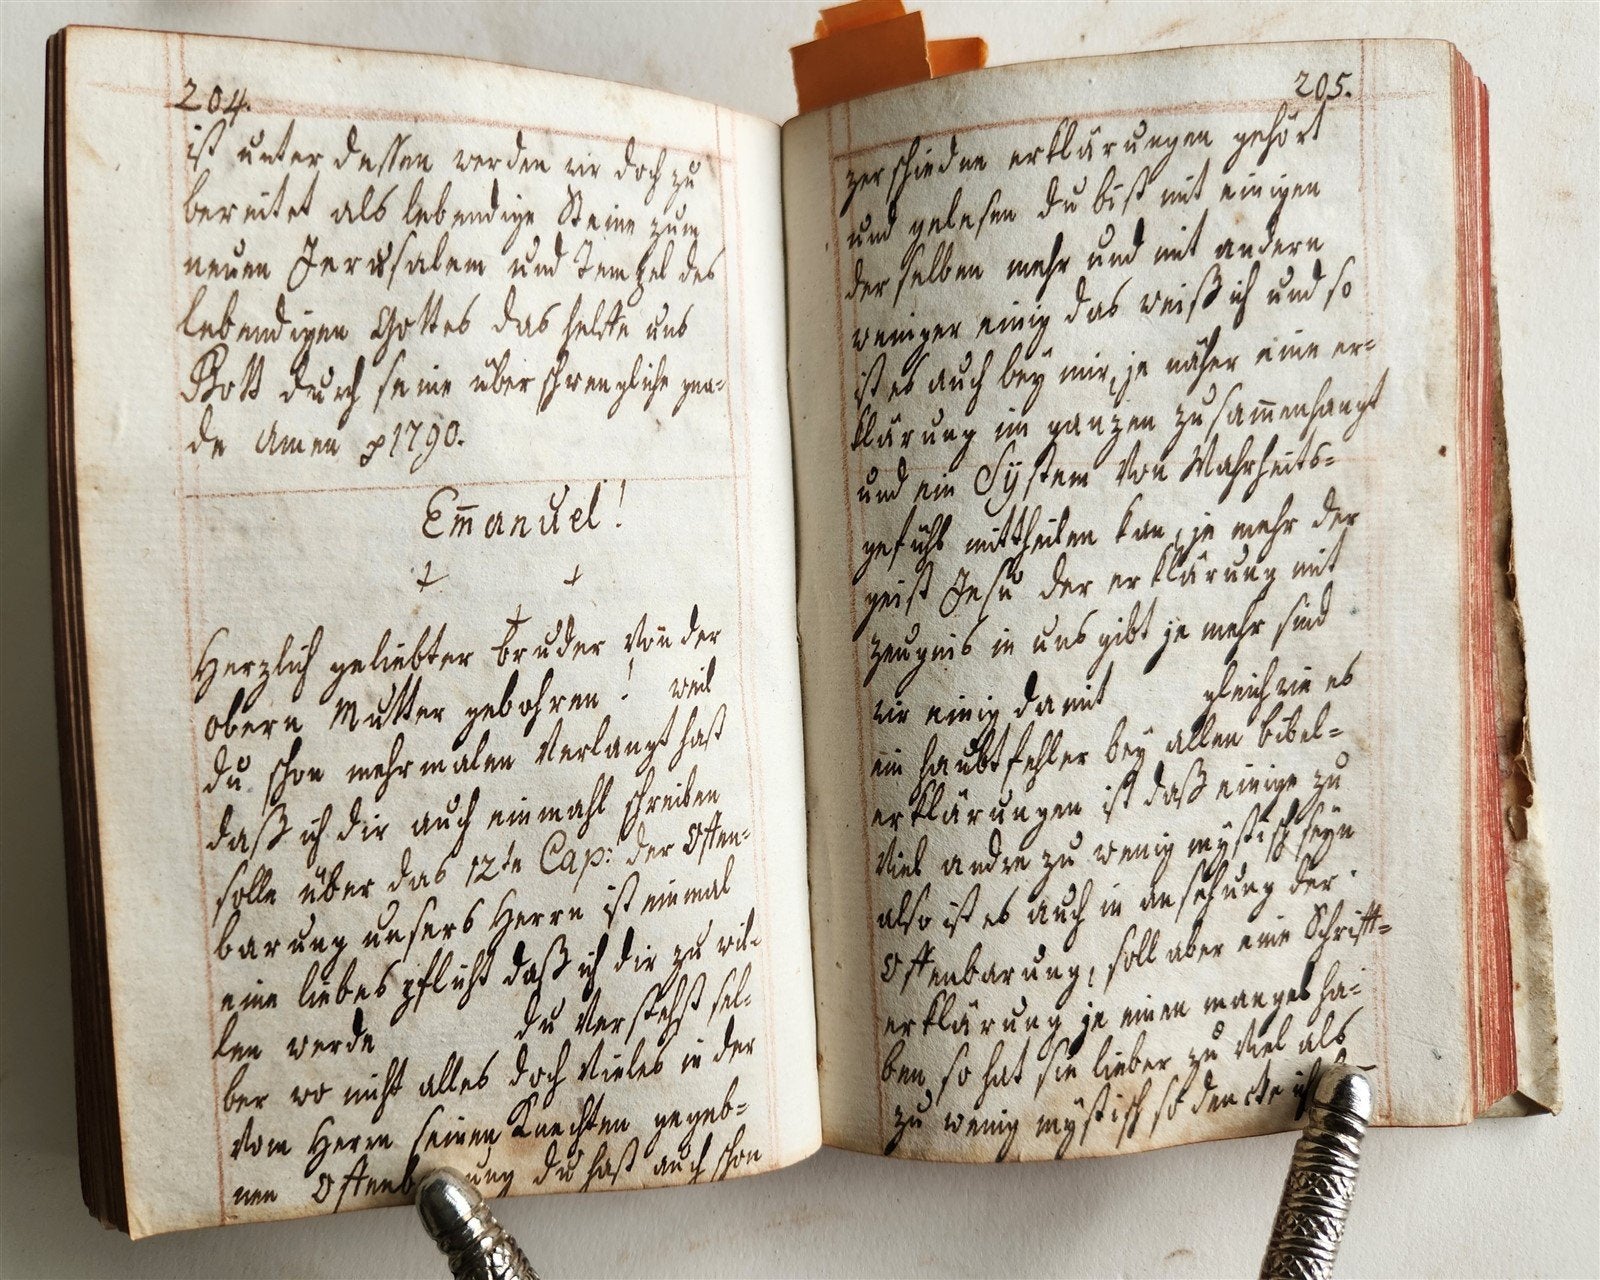 204.
ist unter dessen werden wir doch zu
bereitet als lebendige Steine zum
neuen Jerusalem und Tempel des
lebendigen Gottes das helffe uns
Gott durch seine überschwengliche gna=
de Amen 1790.
Em̅anuel!
Herzlich geliebter bruder Von der
obern Mutter gebohren! weil
du schon mehrmalen Verlangt hast
daß ich dir auch einmahl schreiben
solle über das 12te Cap: der Offen=
barung unsers Herrn ist einmal
eine liebespflicht daß ich dir zu wil=
len werde du Verstehst sel=
ber wo nicht alles doch Vieles in der
Vom Herrn seinen Knechten gegeb=
nen du hast auch schon
205.
zerschiedne erklärungen gehört
und gelesen du bist mit einigen
derselben mehr und mit andern
weniger einig das weiß ich und so
ist es auch beÿ mir, je näher eine er=
klärung im ganzen zusam̅enhangt
und ein Sÿstem Von Wahrheits=
gefühl mittheilen kan, je mehr der
geist Jesu der erklärung mit
zeugnis in uns gibt je mehr sind
wir einig damit gleich wie es
ein haubtfehler beÿ allen bibel=
erklärungen ist daß einige zu
Viel andre zu wenig mÿstisch seÿn
also ist es auch in ansehung der
Offenbarung, soll aber eine Schrifft=
erklärung je einen mangel ha=
ben, so hat sie lieber zu Viel als
zu wenig mÿstisch so dencke ich